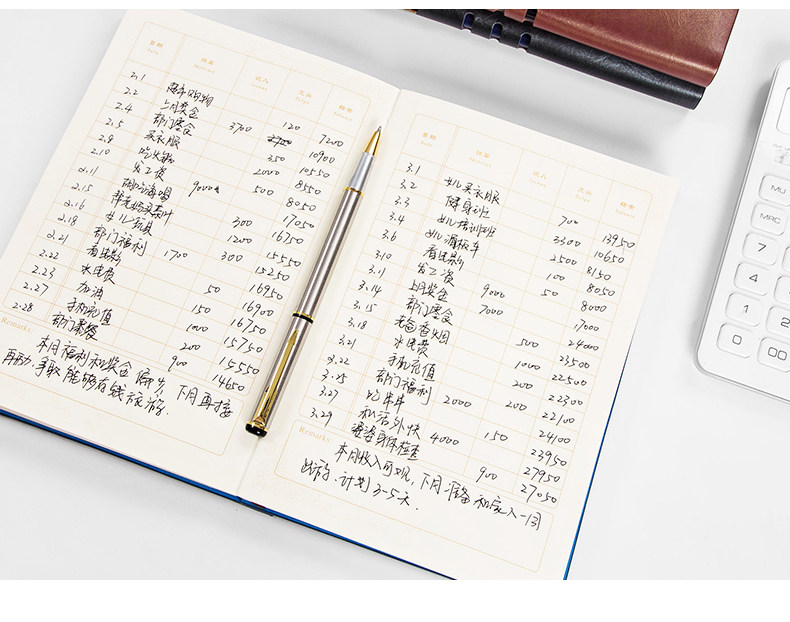 日期 摘要 收入 支出 结余
2.1 超市购物 120 7200
2.2 上月奖金 3700 10900
2.4 部门聚会 350 10550
2.5 买衣服 2000 8550
2.8 吃火锅 500 8050
2.10 发工资 9000 17050
2.11 胡吃海喝 300 16750
2.15 帮老妈买茶叶 1200 15550
2.16 女儿玩具 300 15250
2.18 部门福利 1700 16950
2.21 看电影 50 16900
2.22 水电费 150 16750
2.23 加油 1000 15750
2.27 手机充值 200 15550
2.28 部门聚餐 900 14650
Remarks
本月福利和奖金偏少，下月再接
再励，争取能够有钱旅游.
日期 摘要 收入 支出 结余
3.1 女儿买衣服 700 13950
3.2 健身班 3300 10650
3.3 女儿培训班 2500 8150
3.4 女儿滑板车 100 8050
3.6 看电影 50
3.10 发工资 9000 17000
3.11 上月奖金 7000 24000
3.14 部门聚会 500 23500
3.15 1000 22500
3.18 水电费 200 22300
3.21 手机充值 200 22100
3.22 部门福利 2000 24100
3.25 150 23950
3.27 私活外快 4000 27950
3.29 婆婆身体检查 900 27050
Remarks
本月收入可观，下月准备和家人一同
出游，计划3-5天.
MU
MRC
7
4
1
2
0
00